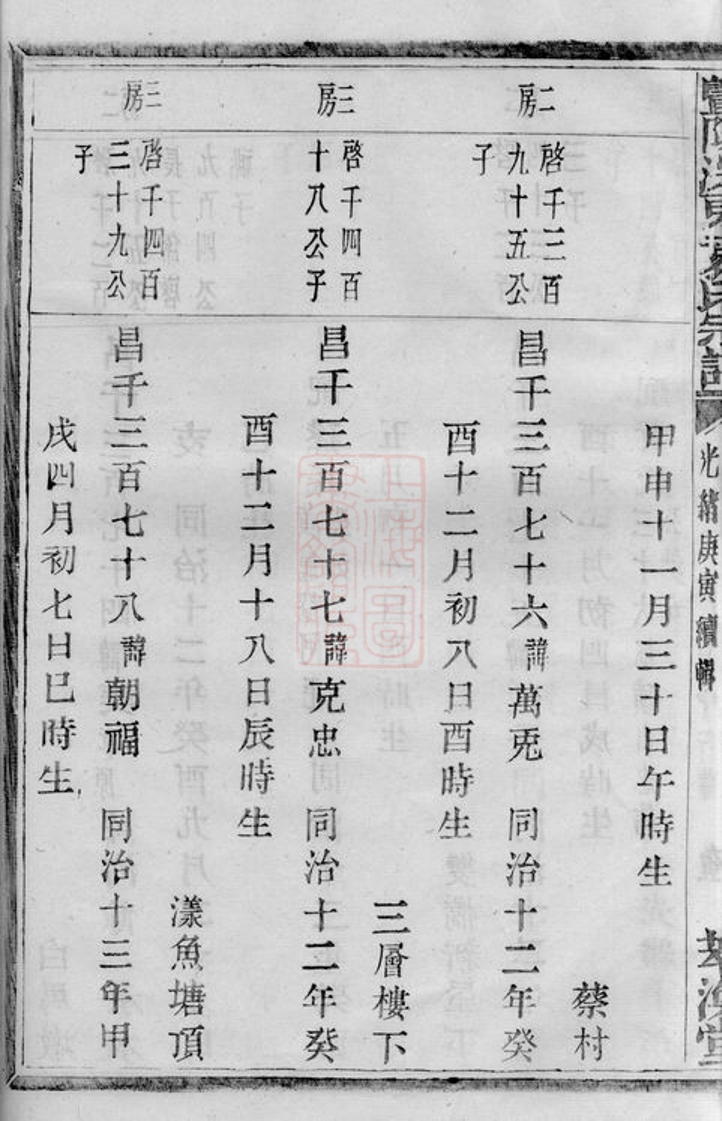 光緒庚寅續輯
甲申十一月三十日午時生
蔡村
二房
啓千三百
九十五公
子
昌千三百七十六諱萬兎 同治十二年癸
酉十二月初八日酉時生
三層樓下
三房
啓千四百
十八公子
昌千三百七十七諱克忠 同治十二年癸
酉十二月十八日辰時生
漾魚塘頂
三房
啓千四百
三十九公
子
昌千三百七十八諱朝福 同治十三年甲
戌四月初七日巳時生